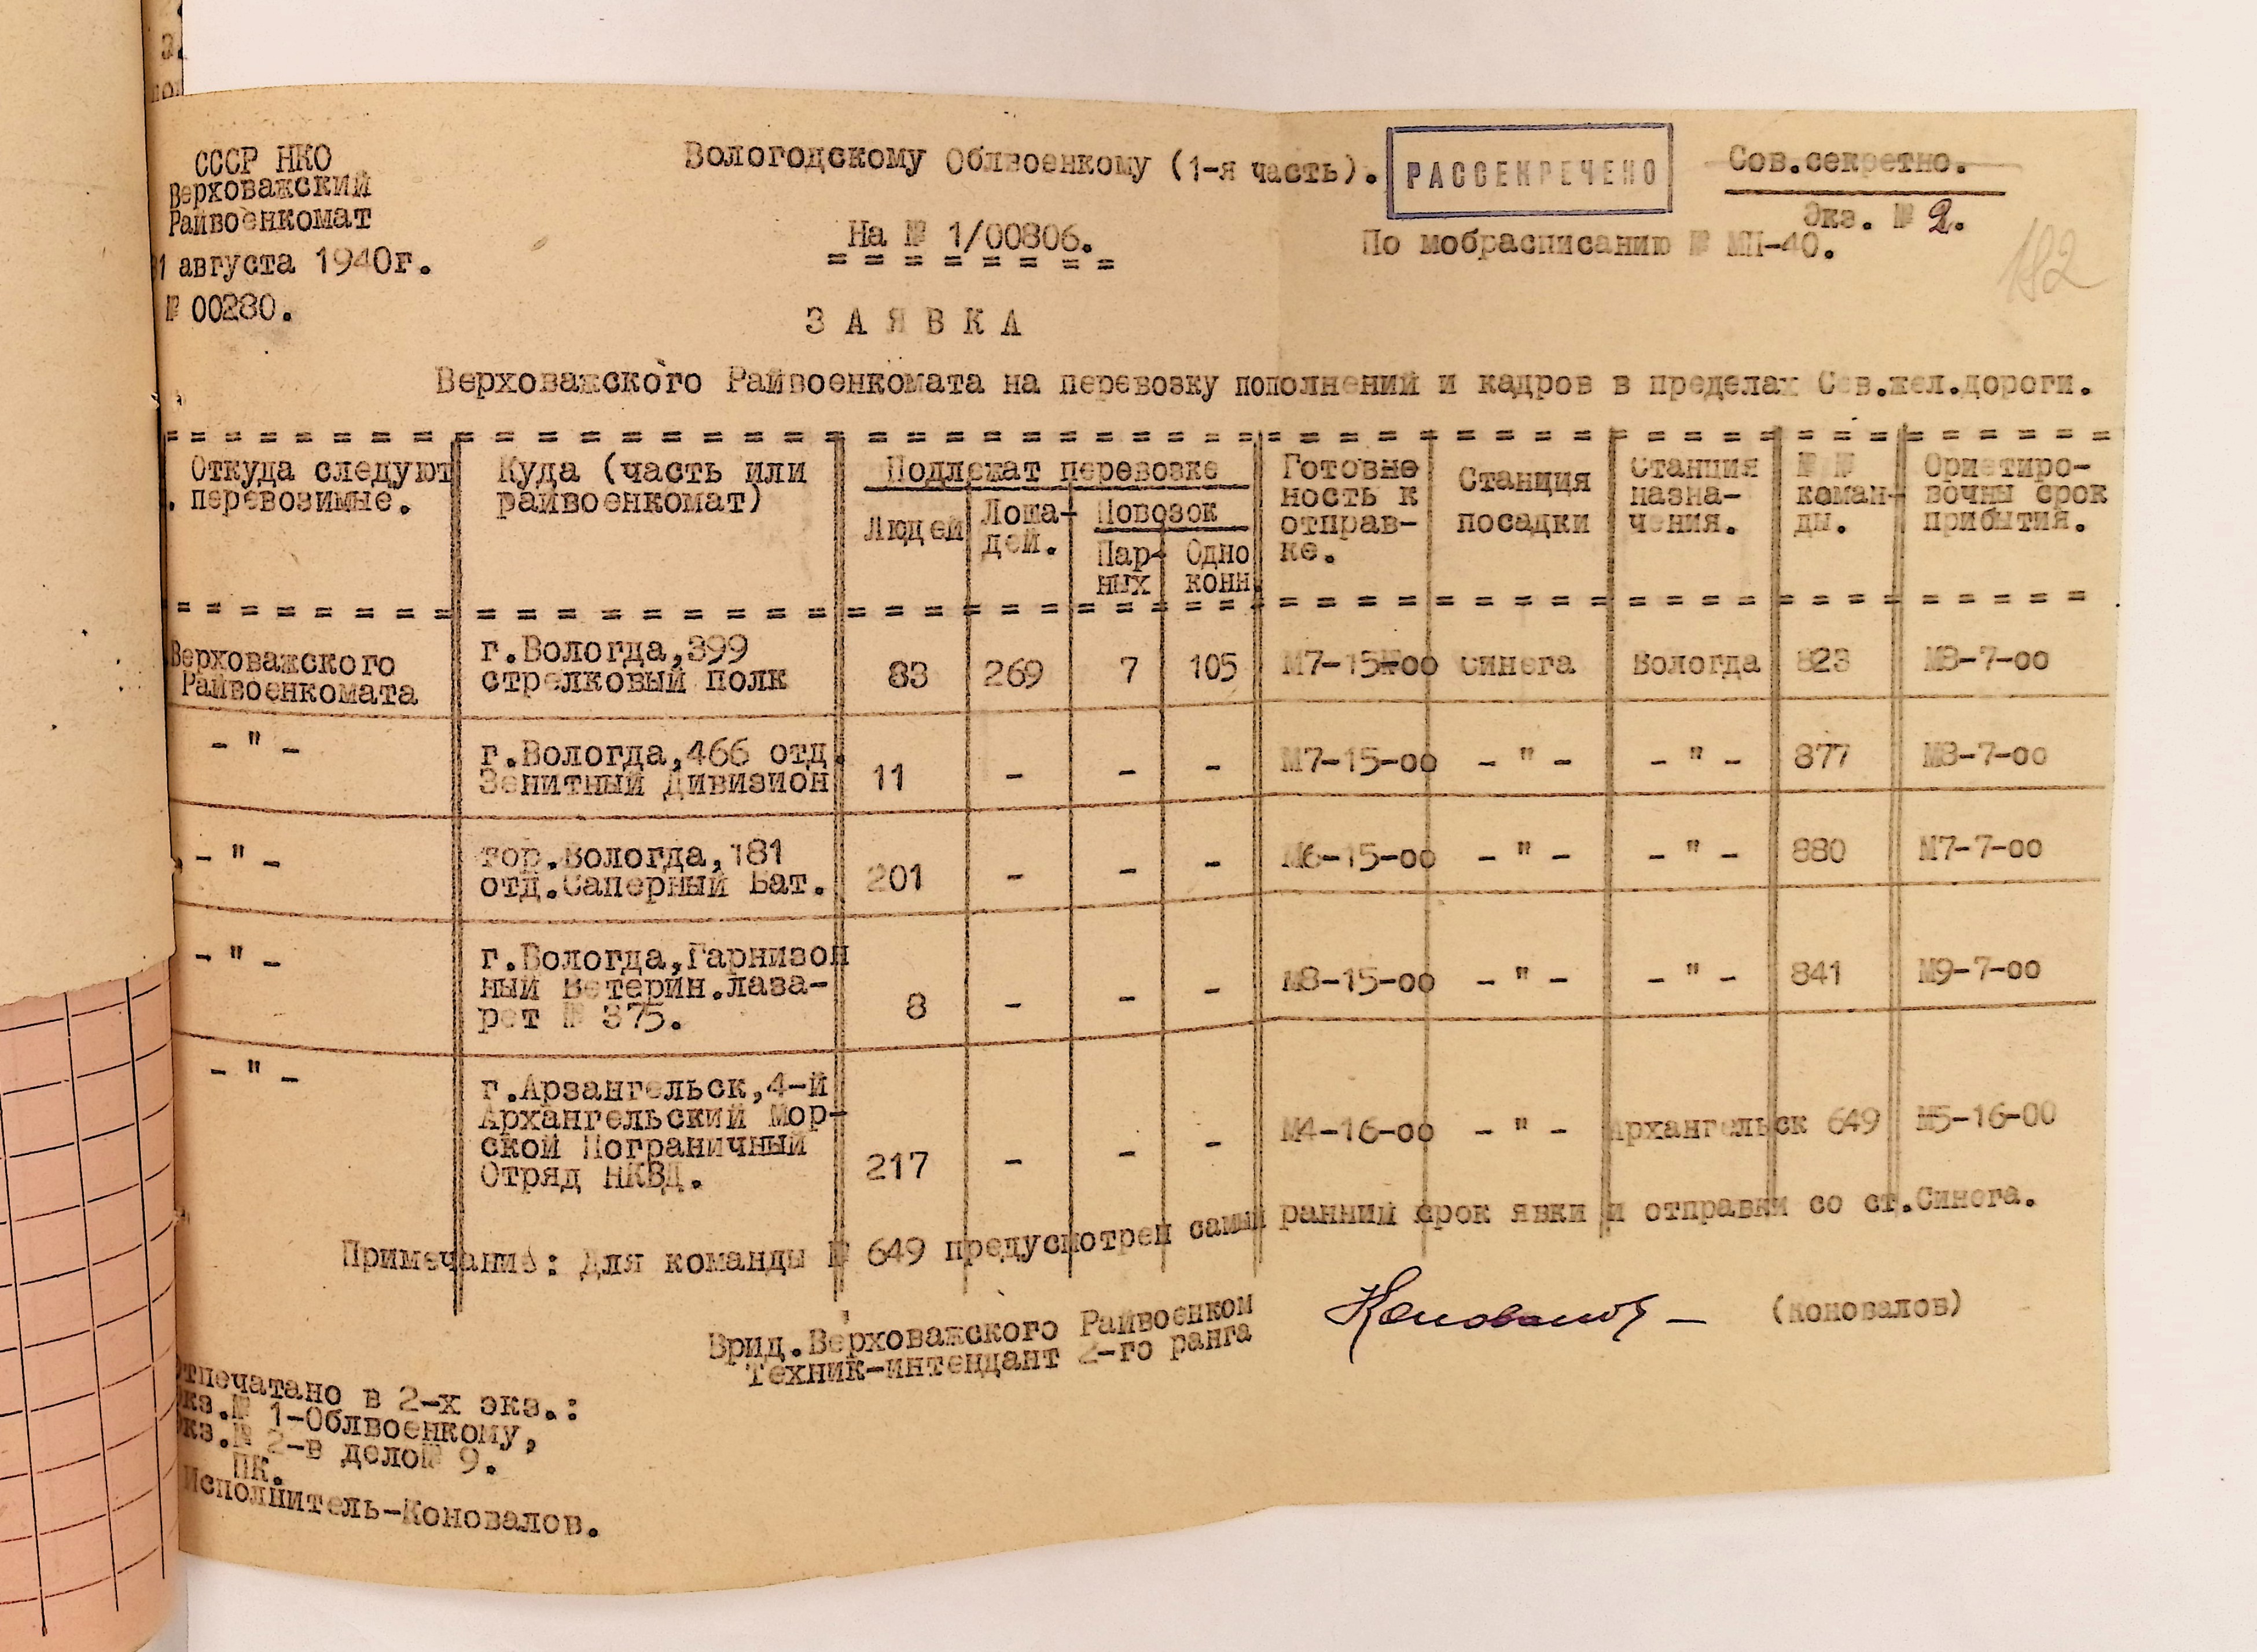 СССР НКО
Верховажский
Райвоенкомат
1 августа 1940г.
№ 00280.
Вологодскому Облвоенкому (1-я часть).
На № 1/00806.
РАССЕКРЕЧЕНО
Сов.секретно.
Экз. № 2.
По мобрасписанию № МП-40.
182
ЗАЯВКА
Верховажского Райвоенкомата на перевозку пополнений и кадров в пределах Сев.жел.дороги.
Откуда следуют перевозимые. Куда (часть или райвоенкомат) Подлежат перевозке Людей Лоша-дей. Повозок Пар-ных Одно конн. Готовно ность к отправ-ке. Станция посадки Станция назна-чения. №№ коман-ды. Ориетиро-вочны срок прибытия.
Верховажского Райвоенкомата г.Вологда,399 стрелковый полк 83 269 7 105 М7-15-00 Синега Вологда 823 М8-7-00
-"- г.Вологда,466 отд. Зенитный Дивизион 11 - - - М7-15-00 -"- -"- 877 М8-7-00
-"- гор.Вологда,181 отд.Саперный Бат. 201 - - - М6-15-00 -"- -"- 880 М7-7-00
-"- г.Вологда,Гарнизон ный Ветерин.лаза-рет № 375. 8 - - - М8-15-00 -"- -"- 841 М9-7-00
-"- г.Арзангельск,4-й Архангельский Мор-ской Пограничный Отряд НКВД. 217 - - - М4-16-00 -"- Архангельск 649 М5-16-00
Примечание: Для команды № 649 предусмотрен самый ранним срок явки и отправки со ст.Синега.
Врид.Верховажского Райвоенком
Техник-интендант 2-го ранга
Коновалов
(Коновалов)
Отпечатано в 2-х экз.:
Экз.№ 1-Облвоенкому,
Экз.№ 2-в дело№ 9.
ПК.
Исполнитель-Коновалов.